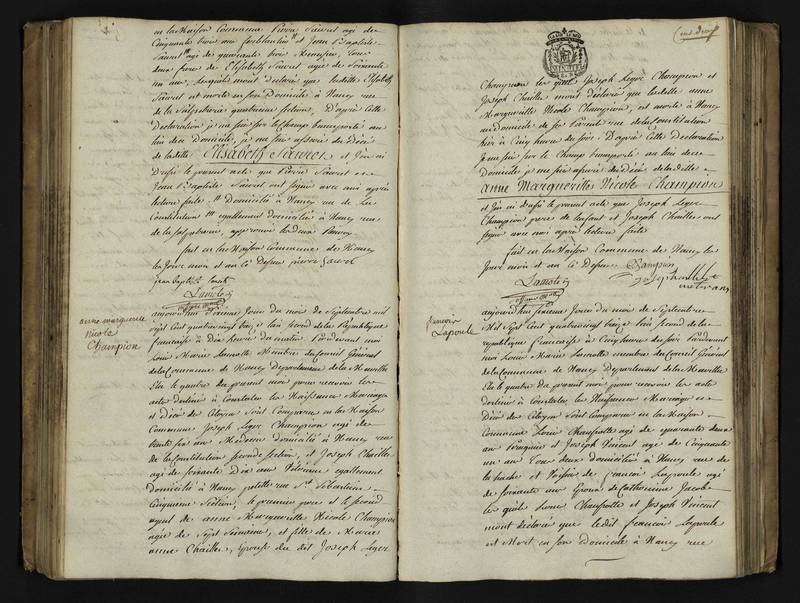 en la Maison Commune Pierre Sauret agé de
Cinquante trois ans ferblantier et Jean Baptiste
Sauret agé de quarante trois Menuisier tous
deux frere de Elisabeth Sauret agée de Soixante
un ans, lesquels m'ont declaré que ladite Elisabeth
Sauret est morte en son Domicile à Nancy rue
de la Salpetrerie quatrieme Section, D'après cette
Declaration je me suis sur le champ transporté au
lieu dece Domicile, je me suis assuré du Décés
de ladite Elisabeth Sauret et J'en ai
Dressé le present acte que Pierre Sauret et
Jean Baptiste Sauret ont signé avec moi après
lecture faite Domicilié à Nancy rue de la
Constitution egallement domicilié à Nancy rue
de la Salpetrerie, approuvé
fait en la Maison Commune de Nancy
les Jour mois et an ci Dessus pierre Sauret
jean baptiste Sauret
Lamotte
officier public
anne marguerite
Nicole
Champion
aujourd'hui sixieme Jour du mois de Septembre mil
Sept Cent quatre vingt treize l'an second de la République
francaise à Dix heures du matin Pardevant moi
Louis Marie Lamotte Membre du Conseil Général
de la Commune de Nancy Département de la Meurthe
Elu le quatre du present mois pour recevoir les
actes destinés à Constater les Naissances Mariages
et Décés des Citoyens Sont Comparus en la Maison
Commune Joseph Leger Champion agé de
trente six ans Marchand domicilié à Nancy rue
de la Constitution seconde Section, et Joseph Chailler
agé de soixante Dix ans Veterane egallement
domicilié à Nancy petite rue St Sebastien
Cinquieme Section, le premier pere et le second
ayeul de anne Marguerite Nicole Champion
agée de Sept Semaines, et fille de Marie
anne Chailler, Epouse du dit Joseph Leger
Cent deux
Champion les quels Joseph Leger Champion et
Joseph Chailler m'ont déclaré que ladite anne
Marguerite Nicole Champion, est morte à Nancy
au domicile de ses Parents rue de la Constitution
hier à Cinq heures du soir. D'après cette Declaration
je me suis sur le Champ transporté au lieu de ce
Domicile je me suis assuré du Décés de ladite
anne Marguerite Nicole Champion
et J'en ai dressé le present acte que Joseph Leger
Champion pere de l'enfant et Joseph Chailler ont
signé avec moi après lecture faite
fait en la Maison Commune de Nancy les
Jour mois et an ci Dessus Champion
Lamotte joseph chailler
officier public veteran
francois
Lapoule
aujourd'hui sixieme Jour du mois de Septembre
Mil Sept Cent quatre vingt treize l'an second de la
republique francaise à Cinq heures du soir Pardevant
moi Louis Marie Lamotte membre du Conseil Général
de la Commune de Nancy Département de la Meurthe
Elu le quatre du present mois pour recevoir les actes
destinés à Constater les Naissances Mariages et
Décés des Citoyens Sont Comparus en la Maison
Commune Louis Chaufrotte agé de quarante deux
ans Perruquier et Joseph Vincent agé de Cinquante
un ans tous deux Domiciliés à Nancy rue de
la hache et Voisins de francois Lapoule agé
de soixante ans Epoux de Catherinne Jacob
les quels Louis Chaufrotte et Joseph Vincent
m'ont declaré que ledit francois Lapoule
est Mort en son Domicile à Nancy rue